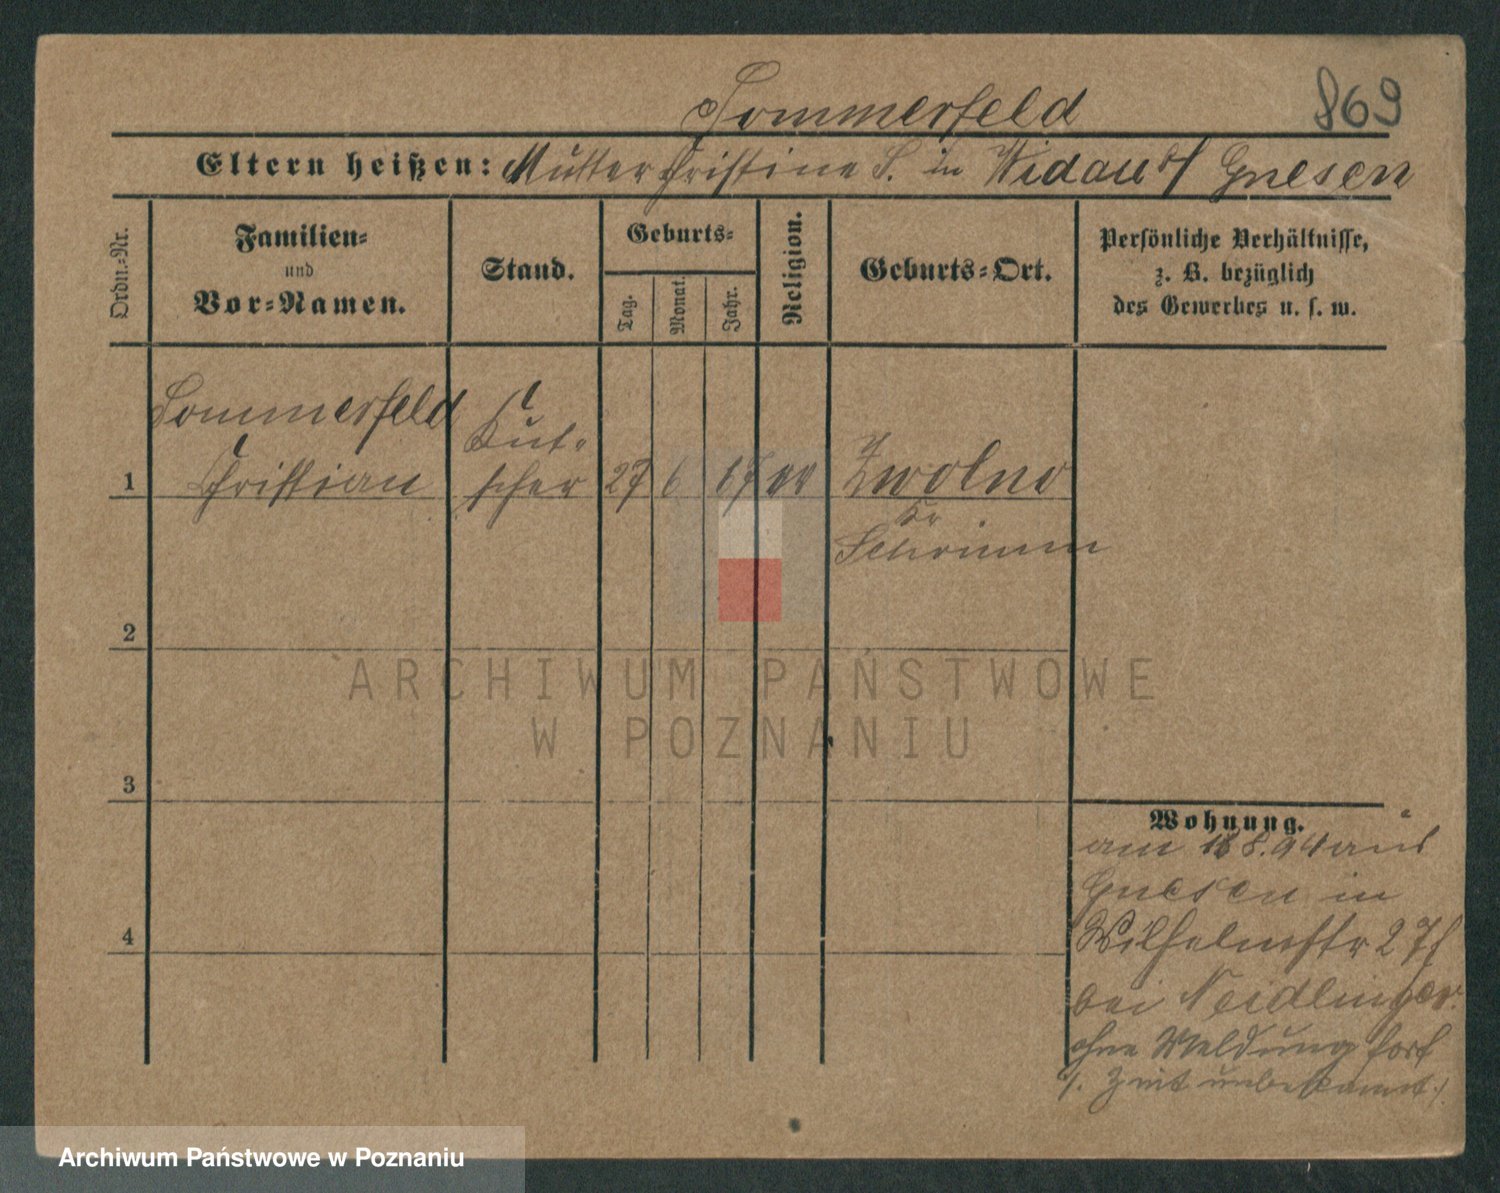 Sommerfeld 869
Eltern heißen: Mutter Christine S. in Widau b/ Gnesen
Ordn.-Nr.
Familien-
und
Vor-Namen.
Stand.
Geburts-
Tag.
Monat.
Jahr.
Religion.
Geburts-Ort.
Persönliche Verhältnisse,
z. B. bezüglich
des Gewerbes u. s. w.
Sommerfeld
Kut-
1 Christian scher 27 6 67 Zwolno
Kr
Schrimm
2
3
4
Wohnung.
am 8.94 aus
Gnesen in
Wilhelmstr 27
bei Neidlinger.
ohne Meldung fort
/. Zeit unbekannt ./
ARCHIWUM PAŃSTWOWE
W POZNANIU
Archiwum Państwowe w Poznaniu